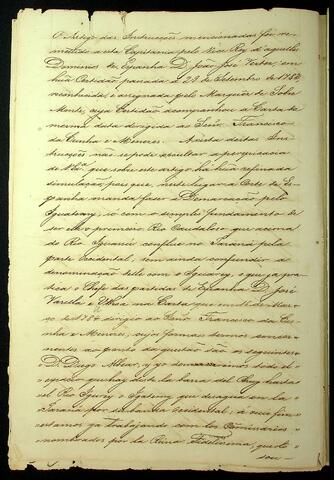 O Artigo das Instrucções mencionadas foi re-
mettido a esta Capitania pelo Vice Rey d'aquelle
Dominios de Espanha D. João José Vertiz, em
huã Certidão passada a 29 de Setembro de 1782,
reconhecida, e assignada pelo Marquêz de Sobre
Monte, cuja Certidão acompanhou a Carta da
mesma data dirigida ao Senr. Francisco
da Cunha e Menezes. A vista destas Ins-
trucções não se pode occultar a perspicacia
de que sobre este artigo ha huã refinada
simulação, para que, neste lugar a Corte de Es-
panha manda fazer a Demarcação pelo
Igatemy, só com o simples fundamento de
ser este o primeiro Rio Caudaloso que acima
do Rio Iguassú conflue no Paraná pela
parte Occidental, sem ainda confundir a
denominação delle com o Iguarey, o que já pra-
tica o Chefe das partidas de Espanha D. José
Varela e Ulhoa na Carta que em 16 de Mar-
ço de 1784 dirigio ao Senr. Francisco da Cu-
nha e Menezes, cujas formaes termos concer-
nentes ao ponto da questão são os seguintes
D. Diego Alvear, y yo demarcaremos todo el
espacio que hay desde la barra del hasta
el Rio Igurey, o Igatimy que desagua en la
Paraná por su banda occidental; à cuio fin
estamos ya trabajando con los Comisarios
nombrados por la Reina Fidelissima; questo
sou—